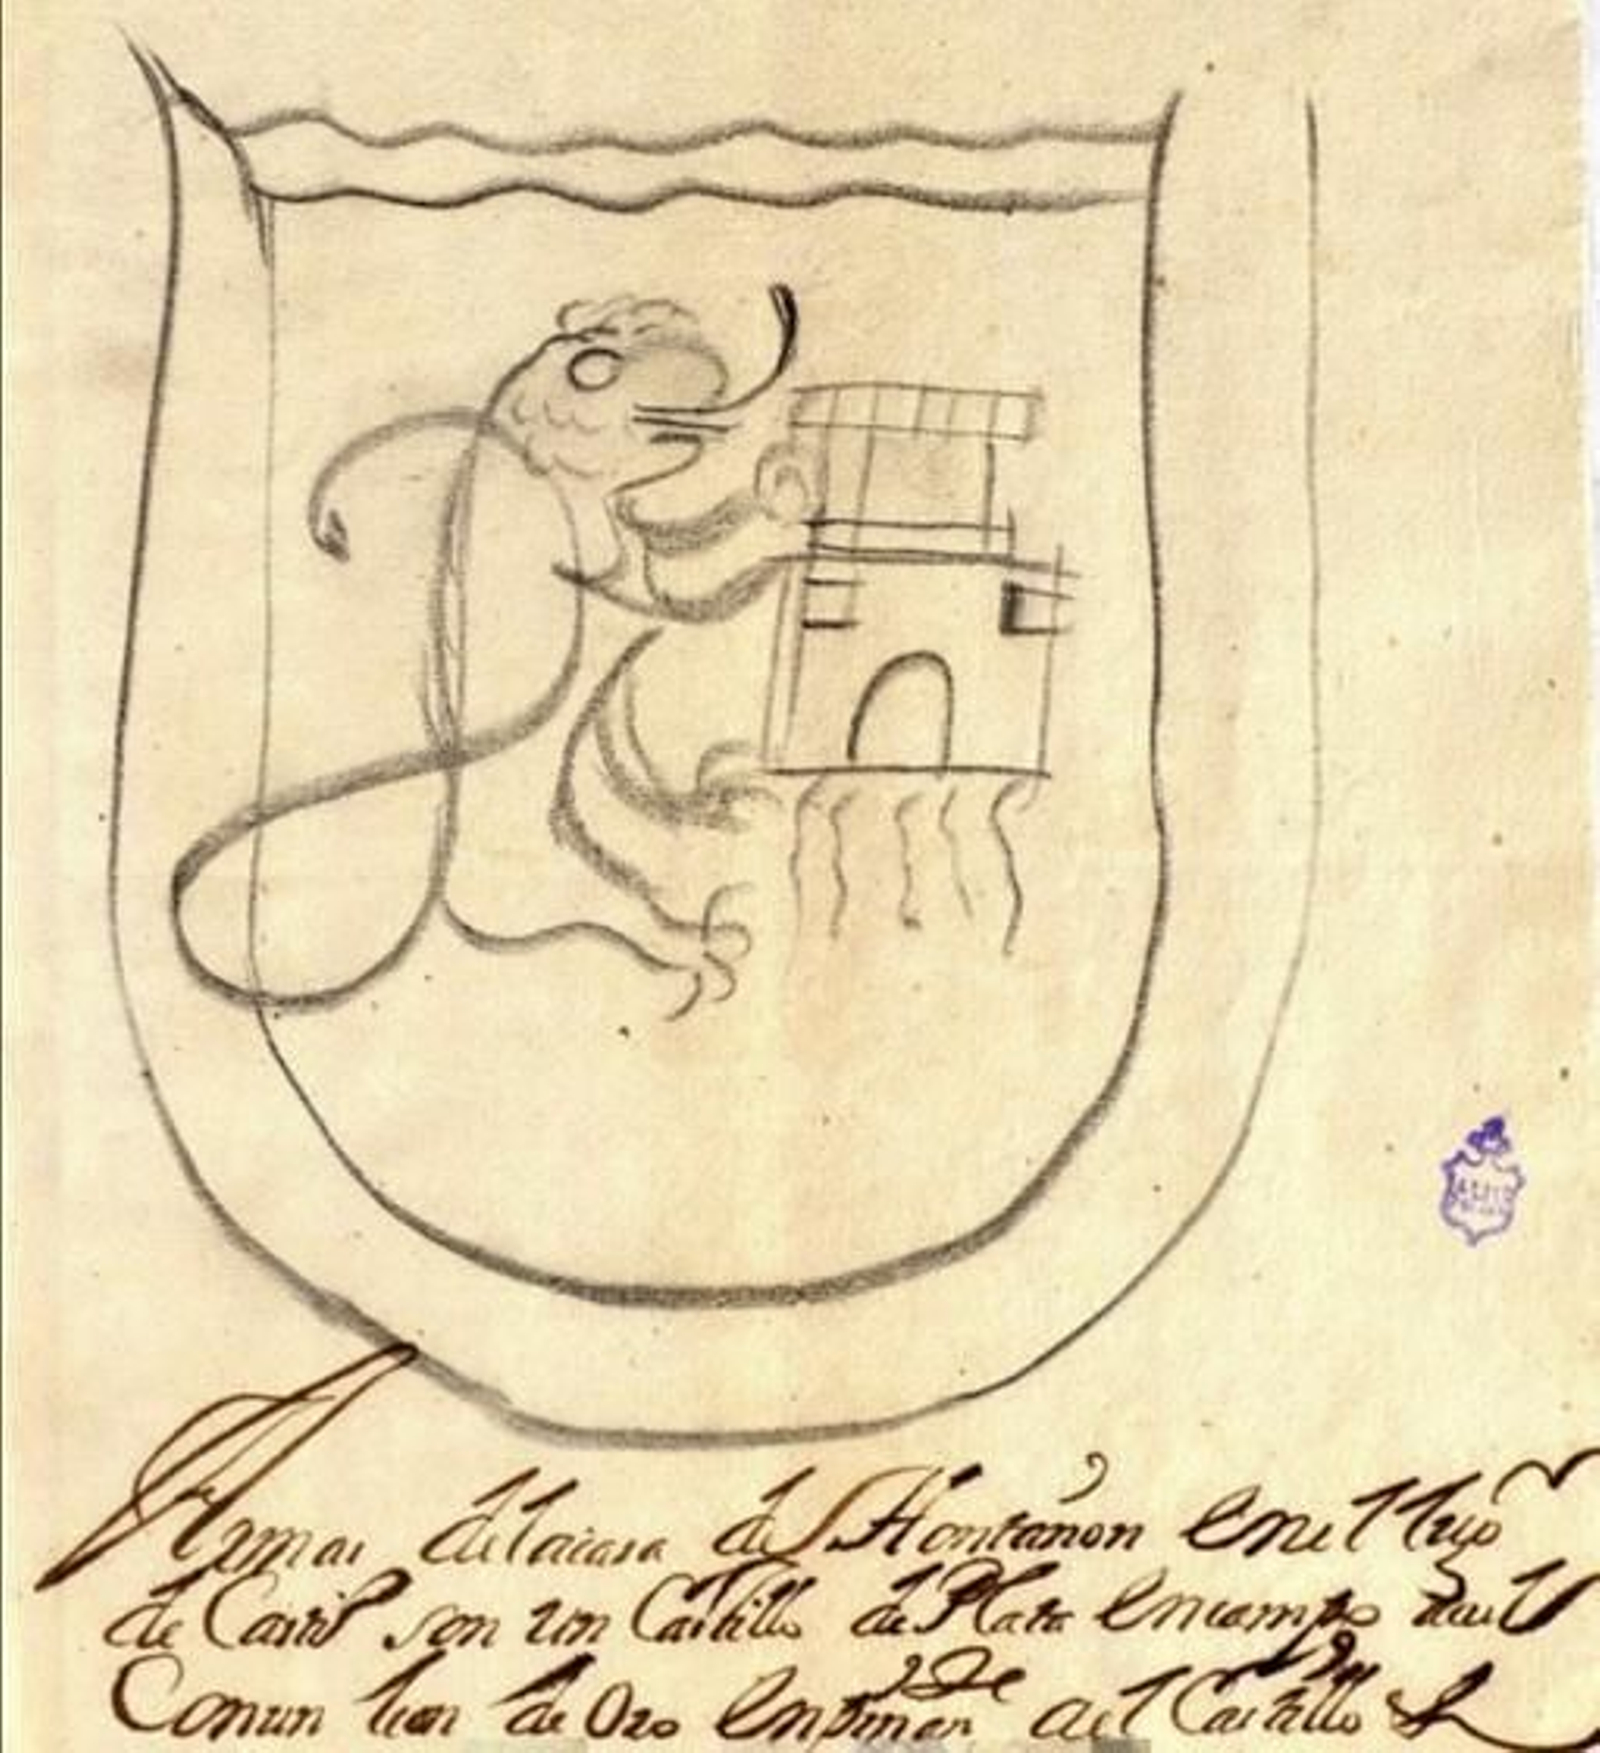 Armas de la casa de Hontañon en el
de Castil son un Castillo de Plata en campo azul
Con un leon de Oro
al Castillo